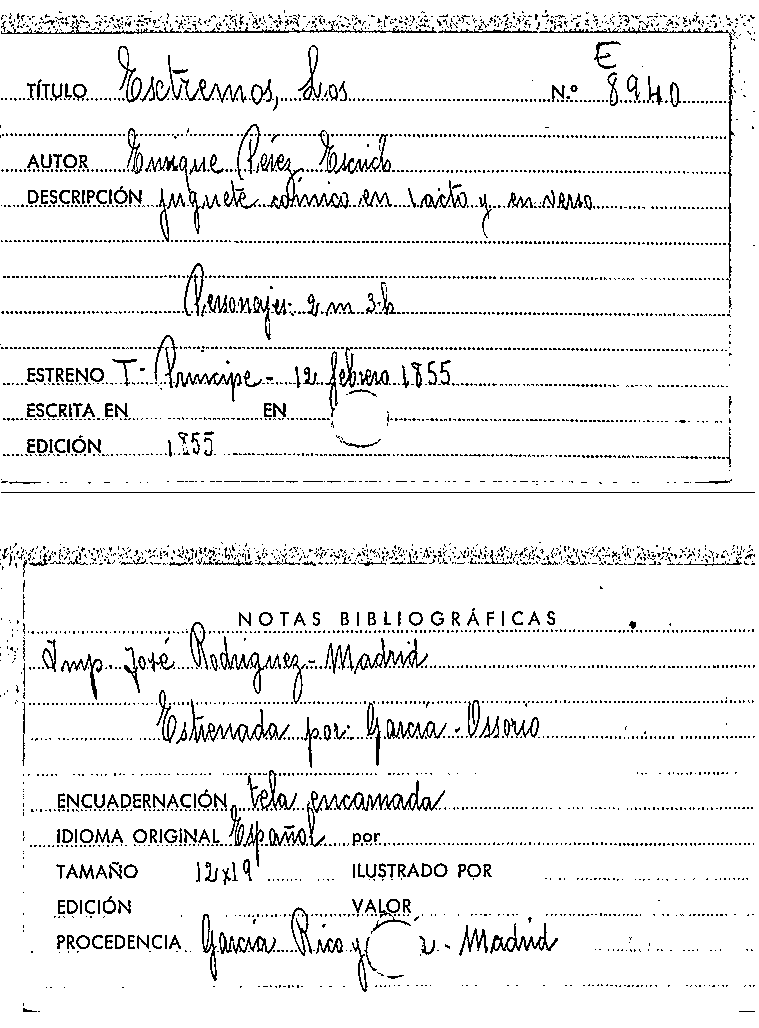 E
TÍTULO Extremos, Los N.º 8940
AUTOR Enrique Pérez Escrich
DESCRIPCIÓN juguete cómico en 1 acto y en verso
Personajes: 2 m 3 h
ESTRENO T- Príncipe - 12 febrero 1855
ESCRITA EN EN
EDICIÓN 1855
NOTAS BIBLIOGRÁFICAS
Imp. José Rodríguez - Madrid
Estrenada por: García - Ossorio
ENCUADERNACIÓN tela encarnada
IDIOMA ORIGINAL Español por
TAMAÑO 12x19 ILUSTRADO POR
EDICIÓN VALOR
PROCEDENCIA García Rico y - Madrid